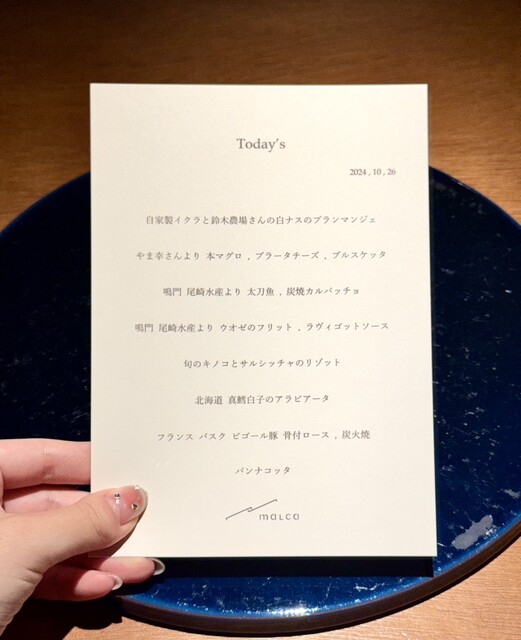 Today's
2024 , 10 , 26
自家製イクラと鈴木農場さんの白ナスのブランマンジェ
やま幸さんより 本マグロ , ブラータチーズ , ブルスケッタ
鳴門 尾崎水産より 太刀魚 , 炭焼カルパッチョ
鳴門 尾崎水産より ウオゼのフリット , ラヴィゴットソース
旬のキノコとサルシッチャのリゾット
北海道 真鱈白子のアラビアータ
フランス バスク ビゴール豚 骨付ロース , 炭火焼
パンナコッタ
maLca